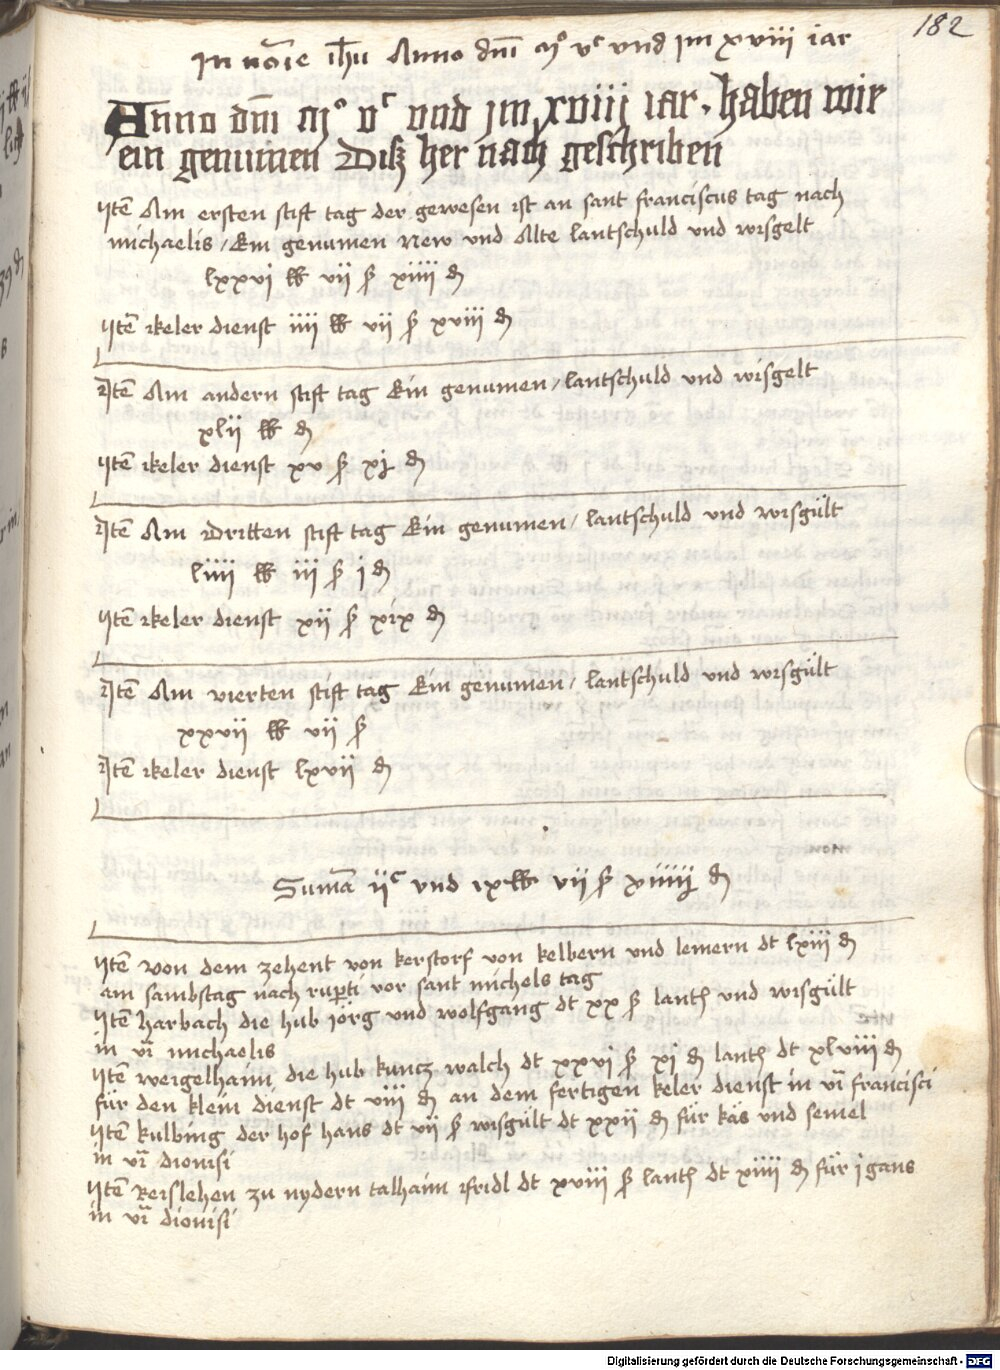 182
In noīe ihū Anno dnī mͦ vᶜ vnd im xviii iar
Anno dnī mͦ vᶜ vnd jm xviij iar. haben wir
ein genumen Disz her nach geschriben
Itē Am ersten stift tag der gewesen ist an sant franciscus tag nach
michaelis / Ein genumen new vnd Alte lantschuld vnd wisgelt
lxxvj ℔ vii ß xiiii ₰
Itē keler dienst iiii ℔ vii ß xviii ₰
Itē Am andern stift tag Ein genumen / lantschuld vnd wisgelt
xlii ℔ ₰
Itē keler dienst xv ß xj ₰
Itē Am Dritten stift tag Ein genumen / lantschuld vnd wisgült
liiii ℔ iii ß j ₰
Itē keler dienst xii ß xix ₰
Itē Am vierten stift tag Ein genumen / lantschuld vnd wisgült
xxvii ℔ vii ß
Itē keler dienst lxvii ₰
Sumā iiᶜ vnd ix ℔ vii ß xiiiij ₰
Itē von dem zehent von kerstorf von kelbern vnd lemern dt lxiii ₰
am sambstag nach rupti vor sant michels tag
Itē harbach die hub jörg vnd wolfgang dt xx ß lanth vnd wisgült
in vī michaelis
Itē weigelhaim die hub kuncz walch dt xxvj ß xj ₰ lanth dt xlviii ₰
für den klein dienst dt viii ₰ an dem fertigen keler dienst in vī francisci
Itē kulbing der hof hans dt vii ß wisgült dt xxii ₰ für käs vnd semel
in vī dionisi
Itē Reislehen zu nydern talhaim fridl dt xviii ß lanth dt xiiii ₰ für j gans
in vī dionisi
Digitalisierung gefördert durch die Deutsche Forschungsgemeinschaft - DFG